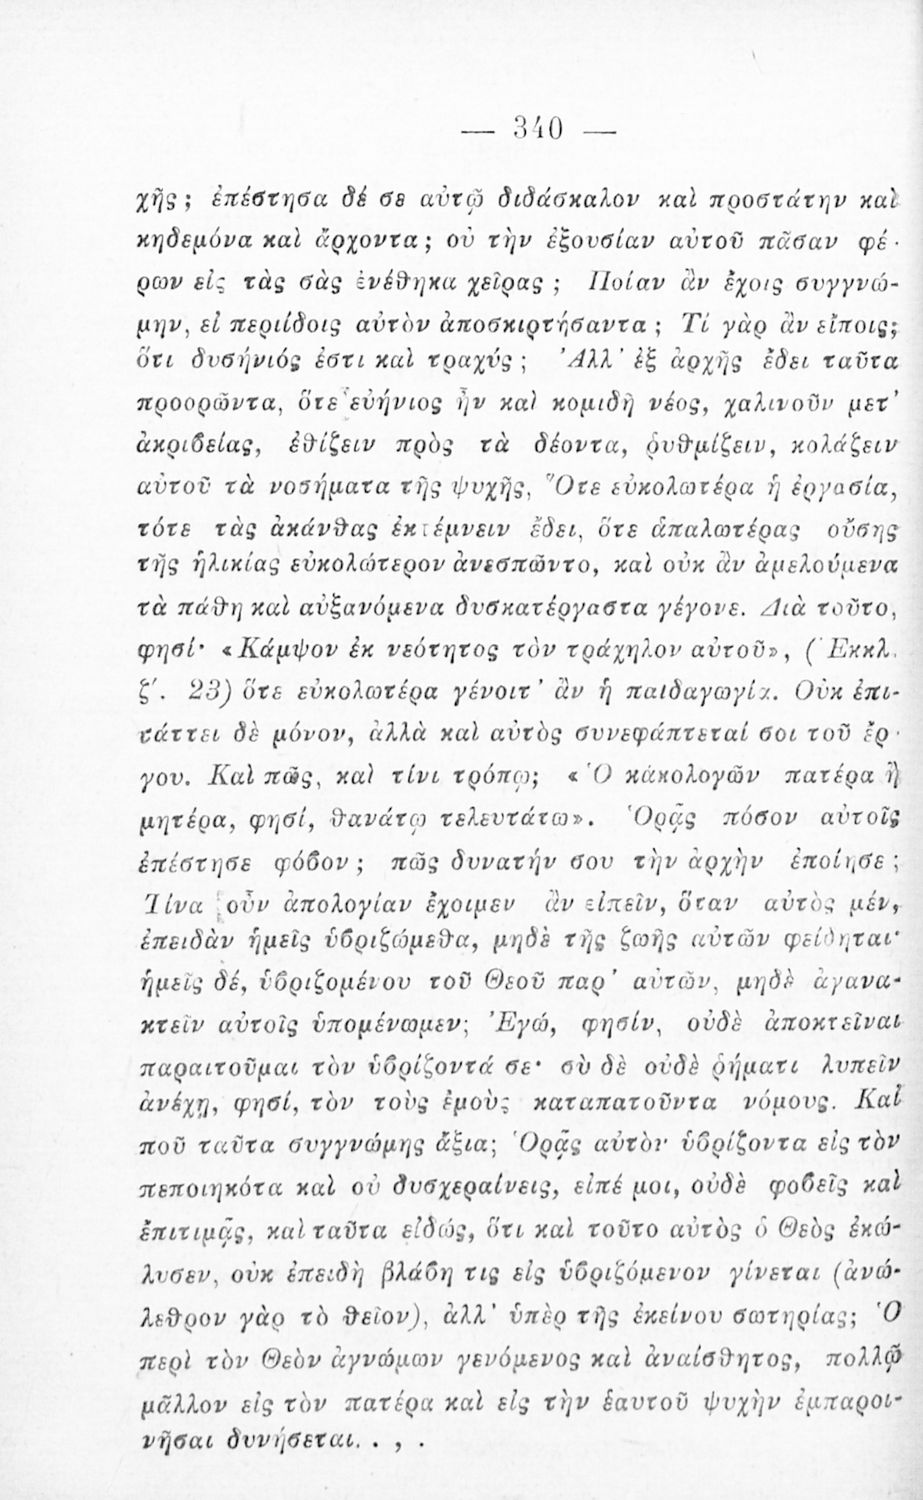 — 340 —
χῆς; ἐπέστησα δέ σε αὐτῷ διδάσκαλον καὶ προστάτην καὶ
κηδεμόνα καὶ ἄρχοντα; οὐ τὴν ἐξουσίαν αὐτοῦ πᾶσαν φέ-
ρων εἰς τὰς σὰς ἐνέθηκα χεῖρας; Ποίαν ἂν ἔχοις συγγνώ-
μην, εἰ περιίδοις αὐτὸν ἀποσκιρτήσαντα; Τί γὰρ ἂν εἴποις;
ὅτι δυσήνιός ἐστι καὶ τραχύς; Ἀλλ' ἐξ ἀρχῆς ἔδει ταῦτα
προορῶντα, ὅτε εὐήνιος ἦν καὶ κομιδῆ νέος, χαλινοῦν μετ'
ἀκριβείας, ἐθίζειν πρὸς τὰ δέοντα, ῥυθμίζειν, κολάζειν
αὐτοῦ τὰ νοσήματα τῆς ψυχῆς, Ὅτε εὐκολωτέρα ἡ ἐργασία,
τότε τὰς ἀκάνθας ἐκτέμνειν ἔδει, ὅτε ἁπαλωτέρας οὔσης
τῆς ἡλικίας εὐκολώτερον ἀνεσπῶντο, καὶ οὐκ ἂν ἀμελούμενα
τὰ πάθη καὶ αὐξανόμενα δυσκατέργαστα γέγονε. Διὰ τοῦτο,
φησί· «Κάμψον ἐκ νεότητος τὸν τράχηλον αὐτοῦ», (Ἐκκλ.
ζ'. 23) ὅτε εὐκολωτέρα γένοιτ' ἂν ἡ παιδαγωγία. Οὐκ ἐπι-
τάττει δὲ μόνον, ἀλλὰ καὶ αὐτὸς συνεφάπτεταί σοι τοῦ ἔρ-
γου. Καὶ πῶς, καὶ τίνι τρόπῳ; «Ὁ κακολογῶν πατέρα ἢ
μητέρα, φησί, θανάτῳ τελευτάτω». Ὁρᾷς πόσον αὐτοῖς
ἐπέστησε φόβον; πῶς δυνατήν σου τὴν ἀρχὴν ἐποίησε;
Τίνα οὖν ἀπολογίαν ἔχοιμεν ἂν εἰπεῖν, ὅταν αὐτὸς μέν,
ἐπειδὰν ἡμεῖς ὑβριζώμεθα, μηδὲ τῆς ζωῆς αὐτῶν φείδηται·
ἡμεῖς δέ, ὑβριζομένου τοῦ Θεοῦ παρ' αὐτῶν, μηδὲ ἀγανα-
κτεῖν αὐτοῖς ὑπομένωμεν; Ἐγώ, φησίν, οὐδὲ ἀποκτεῖναι
παραιτοῦμαι τὸν ὑβρίζοντά σε· σὺ δὲ οὐδὲ ῥήματι λυπεῖν
ἀνέχῃ, φησί, τὸν τοὺς ἐμοὺς καταπατοῦντα νόμους. Καὶ
ποῦ ταῦτα συγγνώμης ἄξια; Ὁρᾷς αὐτὸν ὑβρίζοντα εἰς τὸν
πεποιηκότα καὶ οὐ δυσχεραίνεις, εἰπέ μοι, οὐδὲ φοβεῖς καὶ
ἔπιτιμᾷς, καὶ ταῦτα εἰδώς, ὅτι καὶ τοῦτο αὐτὸς ὁ Θεὸς ἐκώ-
λυσεν, οὐκ ἐπειδὴ βλάβη τις εἰς ὑβριζόμενον γίνεται (ἀνώ-
λεθρον γὰρ τὸ θεῖον), ἀλλ' ὑπὲρ τῆς ἐκείνου σωτηρίας; Ὁ
περὶ τὸν Θεὸν ἀγνώμων γενόμενος καὶ ἀναίσθητος, πολλῷ
μᾶλλον εἰς τὸν πατέρα καὶ εἰς τὴν ἑαυτοῦ ψυχὴν ἐμπαροι-
νῆσαι δυνήσεται. . , .